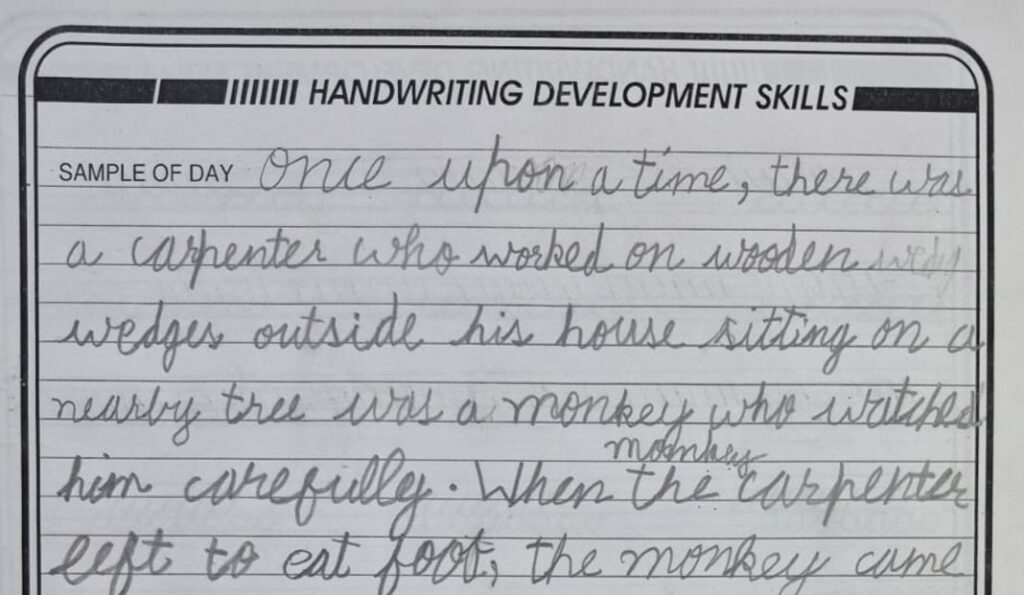 HANDWRITING DEVELOPMENT SKILLS
SAMPLE OF DAY Once upon a time, there was
a carpenter who worked on wooden
wedges outside his house sitting on a
nearby tree was a monkey who watched
monkey
him carefully. When the carpenter
left to eat foot, the monkey came